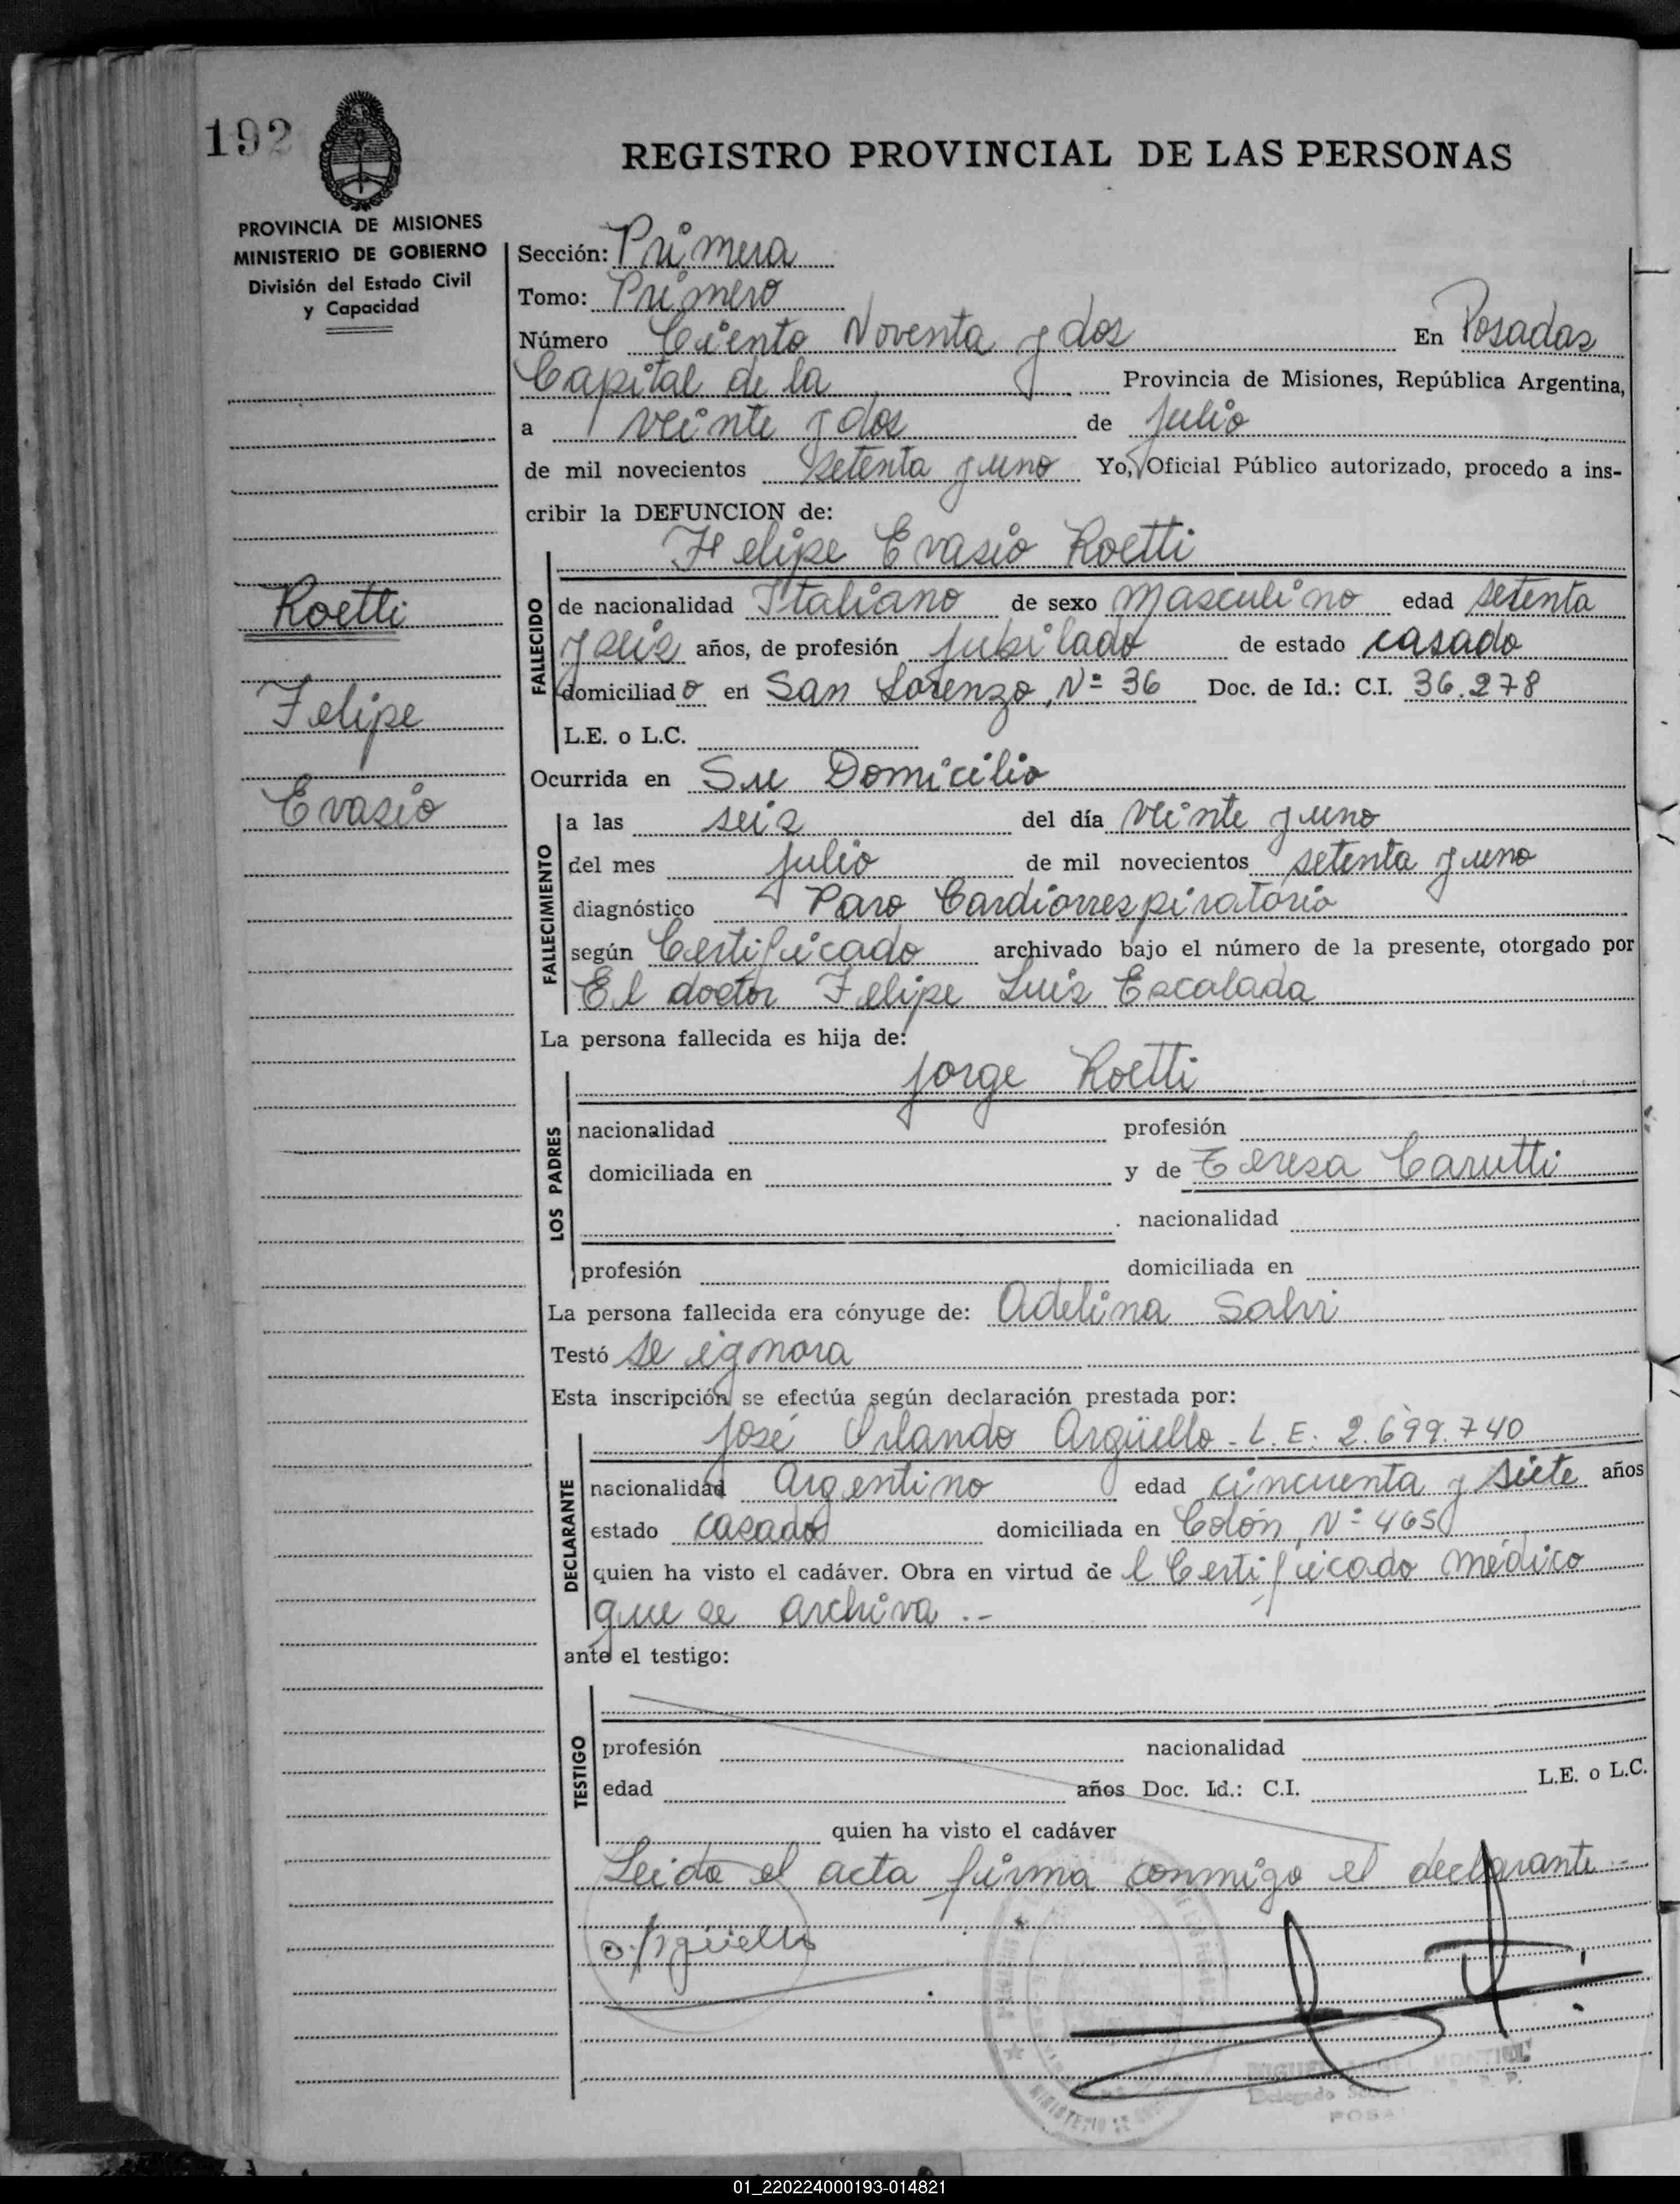 192
REGISTRO PROVINCIAL DE LAS PERSONAS
PROVINCIA DE MISIONES
MINISTERIO DE GOBIERNO
División del Estado Civil
y Capacidad
Roetti
Felipe
Evasio
Sección: Primera
Tomo: Primero
Número Ciento Noventa y dos En Posadas
Capital de la Provincia de Misiones, República Argentina,
a veinte y dos de julio
de mil novecientos setenta y uno Yo, Oficial Público autorizado, procedo a ins-
cribir la DEFUNCION de:
Felipe Evasio Roetti
FALLECIDO
de nacionalidad Italiano de sexo Masculino edad setenta
y seis años, de profesión jubilado de estado casado
domiciliado en San Lorenzo, Nº 36 Doc. de Id.: C.I. 36.278
L.E. o L.C.
Ocurrida en Su Domicilio
FALLECIMIENTO
a las seis del día veinte y uno
del mes julio de mil novecientos setenta y uno
diagnóstico Paro Cardiorrespiratorio
según Certificado archivado bajo el número de la presente, otorgado por
El doctor Felipe Luis Escalada
La persona fallecida es hija de:
Jorge Roetti
LOS PADRES
nacionalidad profesión
domiciliada en y de Teresa Carutti
nacionalidad
profesión domiciliada en
La persona fallecida era cónyuge de: Adelina Salvi
Testó se ignora
Esta inscripción se efectúa según declaración prestada por:
José Orlando Argüello - L.E. 2.699.740
DECLARANTE
nacionalidad Argentino edad cincuenta y siete años
estado casado domiciliada en Colón, Nº 465
quien ha visto el cadáver. Obra en virtud de l Certificado médico
que se archiva .-
ante el testigo:
TESTIGO
profesión nacionalidad
edad años Doc. Id.: C.I. L.E. o L.C.
quien ha visto el cadáver
Leida el acta firma conmigo el declarante.-
O. Argüello
MIGUEL ANGEL MONTIEL
Delegado
POSA
01_220224000193-014821